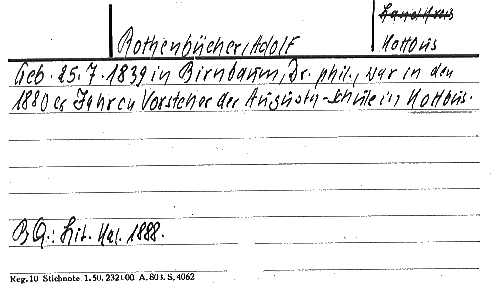 Landkreis
Rothenbücher, Adolf
Kottbus
Geb. 25.7.1839 in Birnbaum, Dr. phil., war in den
1880er Jahren Vorsteher der Augusta-Schule in Kottbus.
BQ.: Lit. Kal. 1888.
Reg. 10 Stichnote. 1. 50. 232100. A. 803. S. 4062